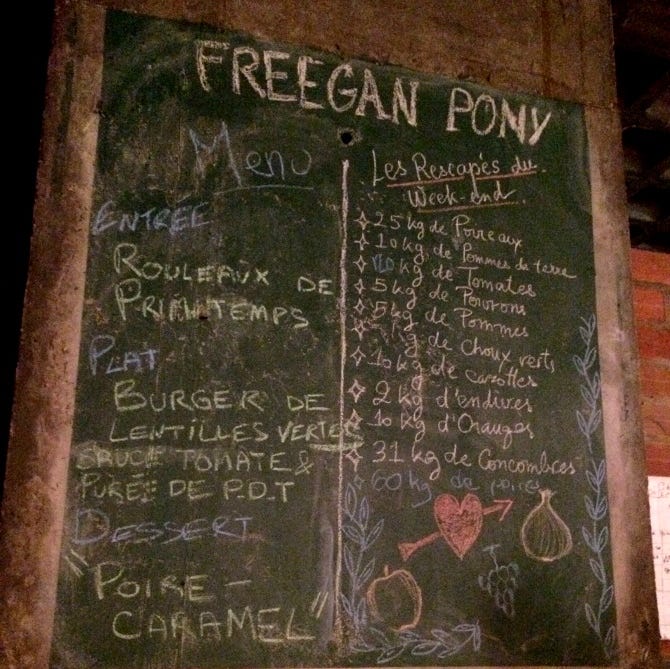 FREEGAN PONY
Menu
ENTRÉE
ROULEAUX DE
PRINTEMPS
PLAT
BURGER DE
LENTILLES VERTES
SAUCE TOMATE &
PURÉE DE P.D.T
DESSERT
"POIRE -
CARAMEL"
Les Rescapés du
Week-end
25 kg de Poireaux
10 kg de Pommes de terre
10 kg de Tomates
5 kg de Poivrons
5 kg de Pommes
kg de choux verts
10 kg de carottes
2 kg d'endives
10 kg d'Oranges
31 kg de Concombres
60 kg de poires